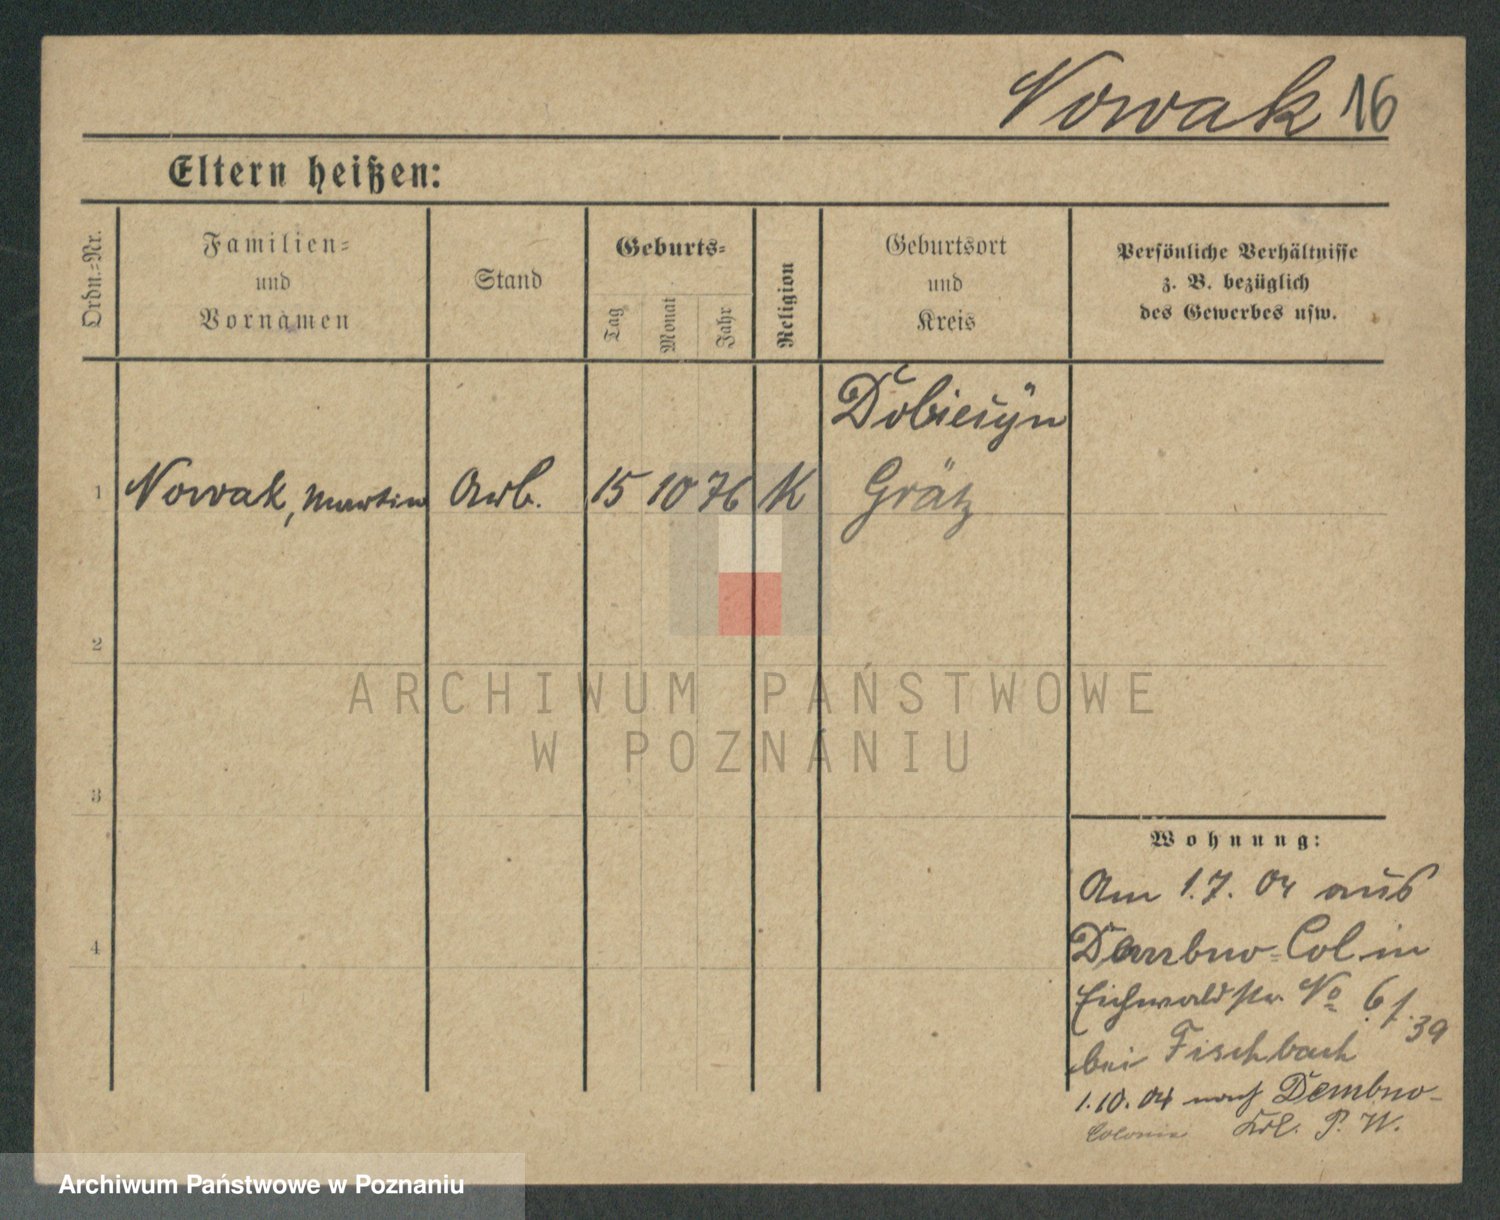 Nowak 16
Eltern heißen:
Ordn.-Nr.
Familien-
und
Vornamen
Stand
Geburts-
Tag
Monat
Jahr
Religion
Geburtsort
und
Kreis
Persönliche Verhältnisse
z. B. bezüglich
des Gewerbes usw.
1
Nowak, Martin
Arb.
15
10
76
K
Grätz
2
3
4
Wohnung:
Am 1.7. 04 aus
Dembno-Col. in
Eichwaldstr. No 6/39
bei Fischbach
1.10. 04 nach Dembno-
Colonie P. W.
ARCHIWUM PAŃSTWOWE
W POZNANIU
Archiwum Państwowe w Poznaniu